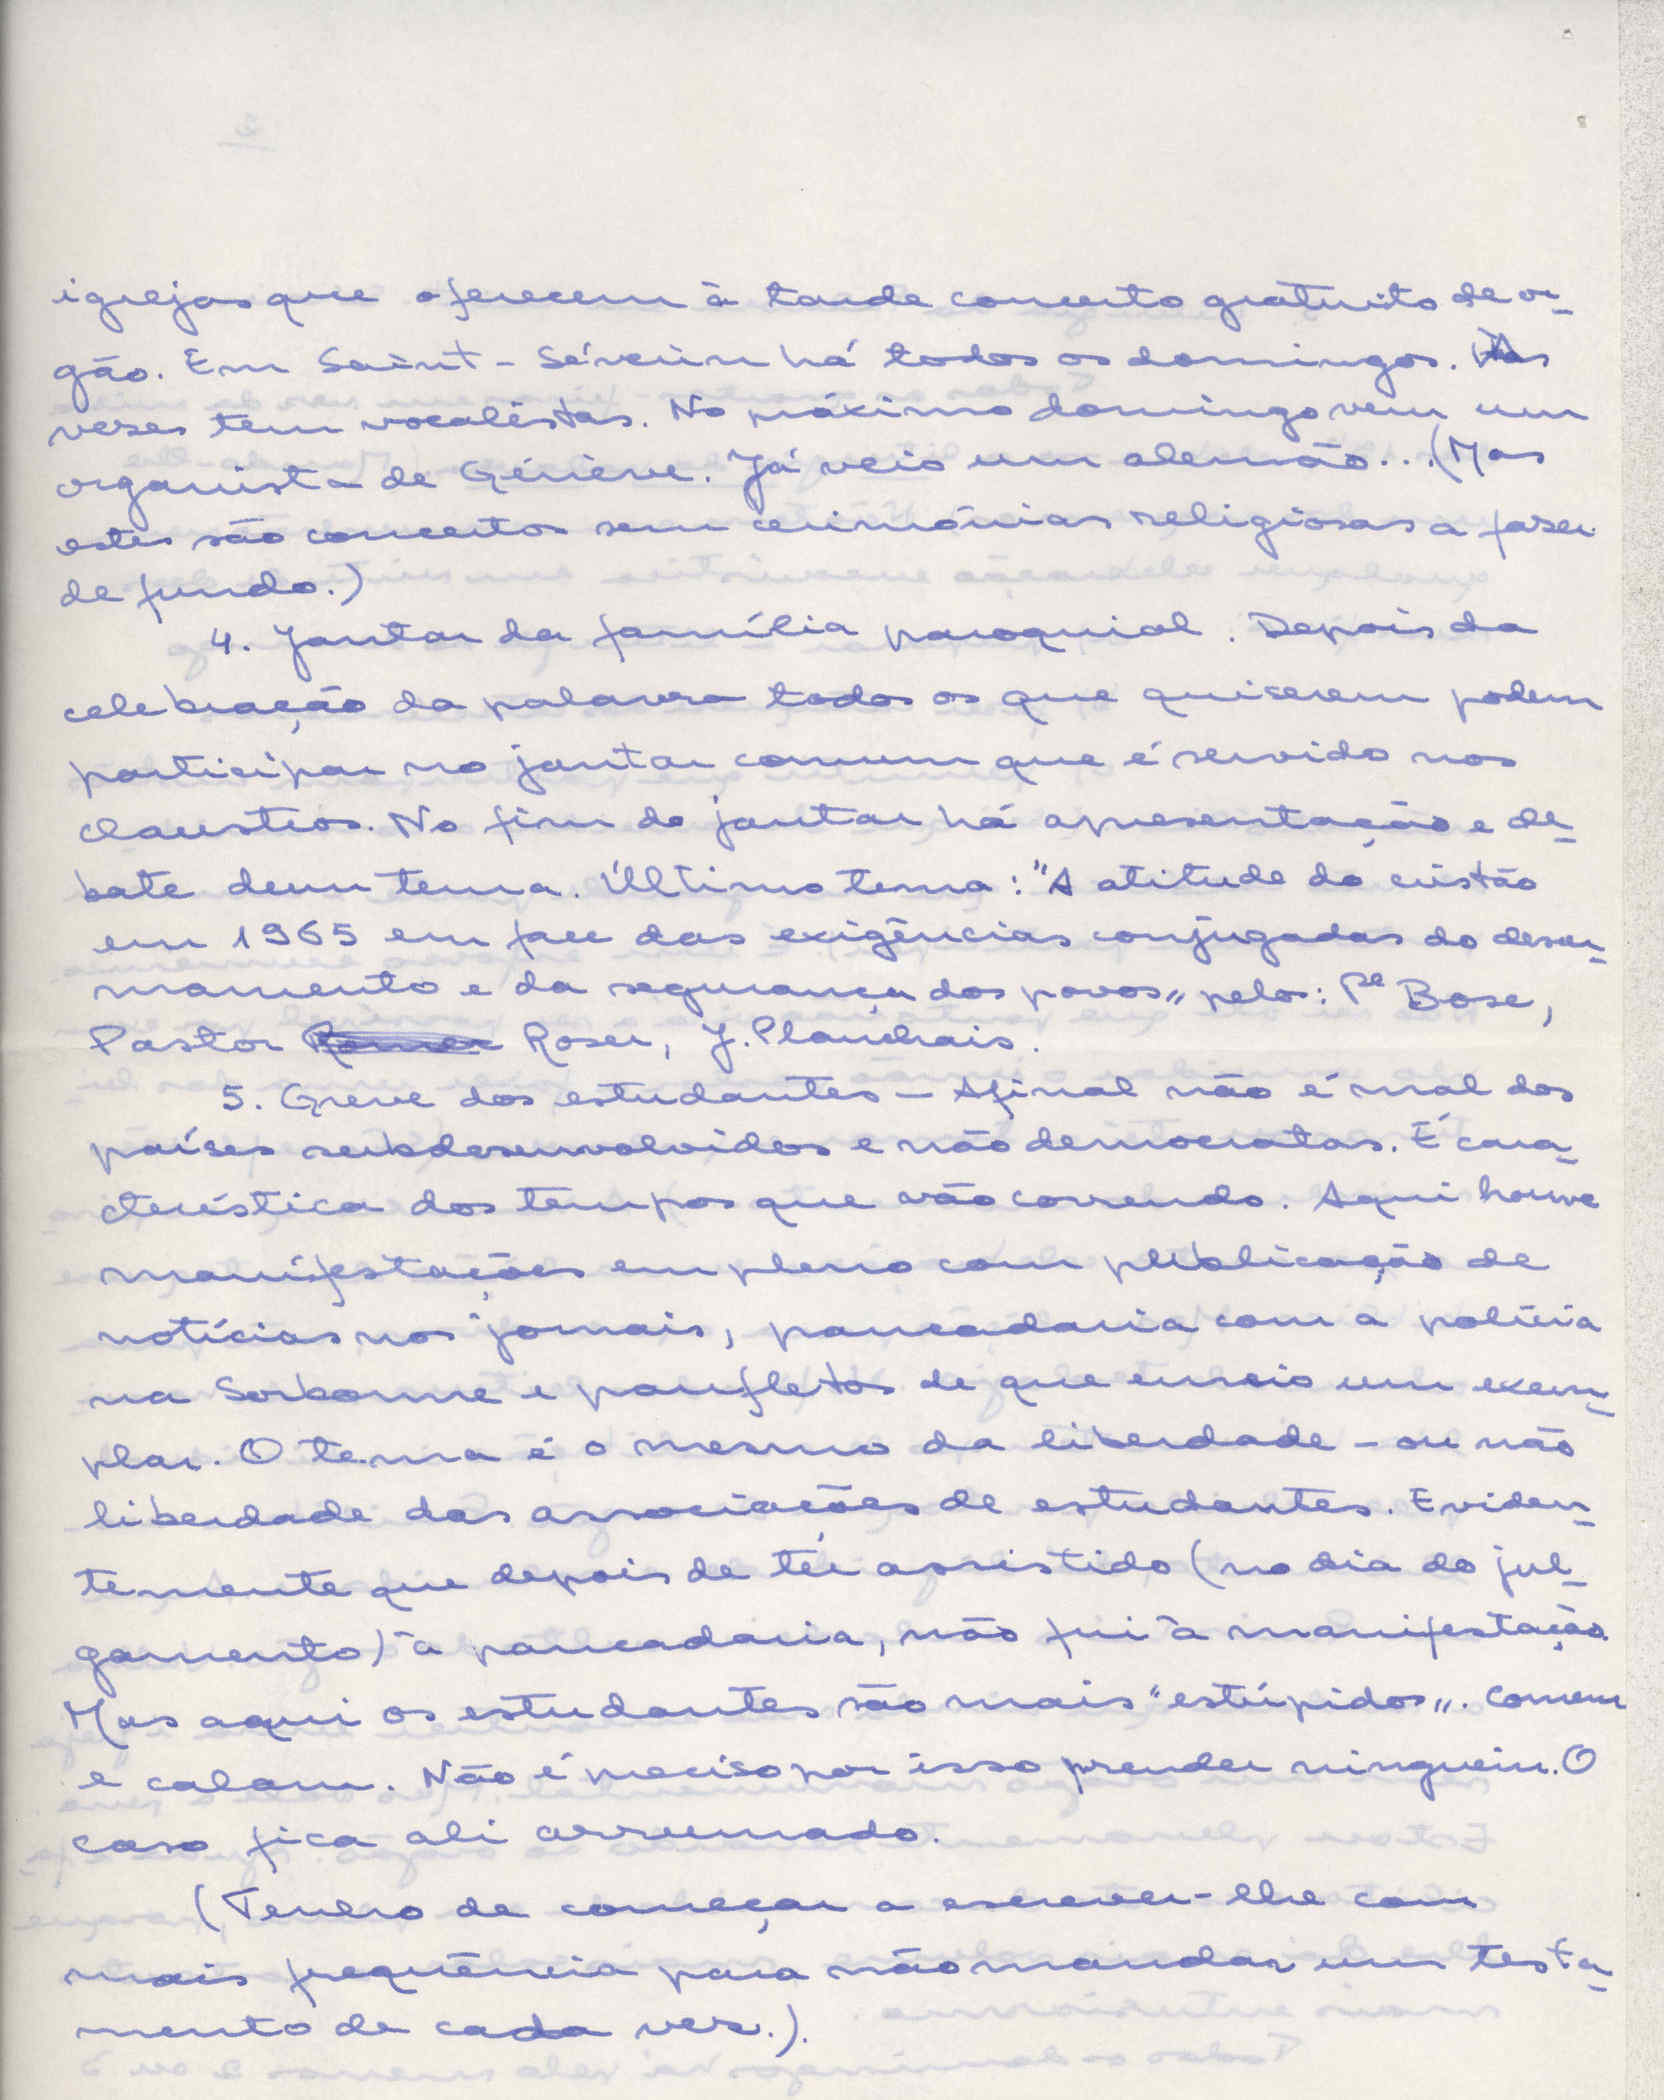 igrejas que oferecem à tarde concerto gratuito de or-
gão. Em Saint-Séverin há todos os domingos. Às
vezes tem vocalistas. No próximo domingo vem um
organista de Génève. Já veio um alemão... (Mas
estes são concertos sem cerimónias religiosas a fazer
de fundo.)
4. Jantar da família paroquial. Depois da
celebração da palavra todos os que quiserem podem
participar no jantar comum que é servido nos
claustros. No fim do jantar há apresentação e de-
bate dum tema. Último tema: "A atitude do cristão
em 1965 em face das exigências conjugadas do desar-
mamento e da segurança dos povos" pelos: Pe Bosc,
Pastor Roser, J. Planchais.
5. Greve dos estudantes - Afinal não é mal dos
países subdesenvolvidos e não democratas. É cara-
cterística dos tempos que vão correndo. Aqui houve
manifestações em pleno com publicação de
notícias nos jornais, pancadaria com a polícia
na Sorbonne e panfletos de que envio um exem-
plar. O tema é o mesmo da liberdade - ou não
liberdade das associações de estudantes. Eviden-
temente que depois de ter assistido (no dia do jul-
gamento) à pancadaria, não fui à manifestação.
Mas aqui os estudantes são mais "estúpidos". Comem
e calam. Não é preciso por isso prender ninguém. O
caso fica ali arrumado.
(Tenho de começar a escrever-lhe com
mais frequência para não mandar um testa-
mento de cada vez.).